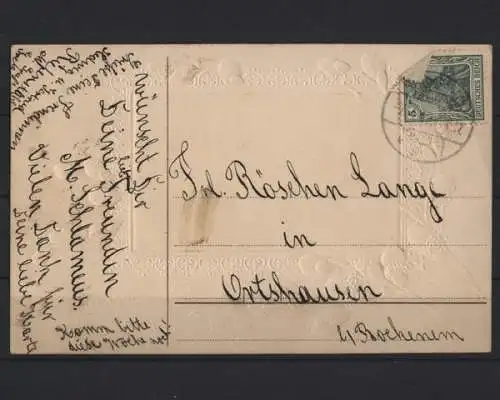 wünscht Dir
Deine Freundin
M. Schlamelis.
Vielen Dank für
Deine liebe Karte
Komm bitte
diese Woche noch!
Frl. Röschen Lange
in
Ortshausen
b/ Bockenem
DEUTSCHES REICH
5